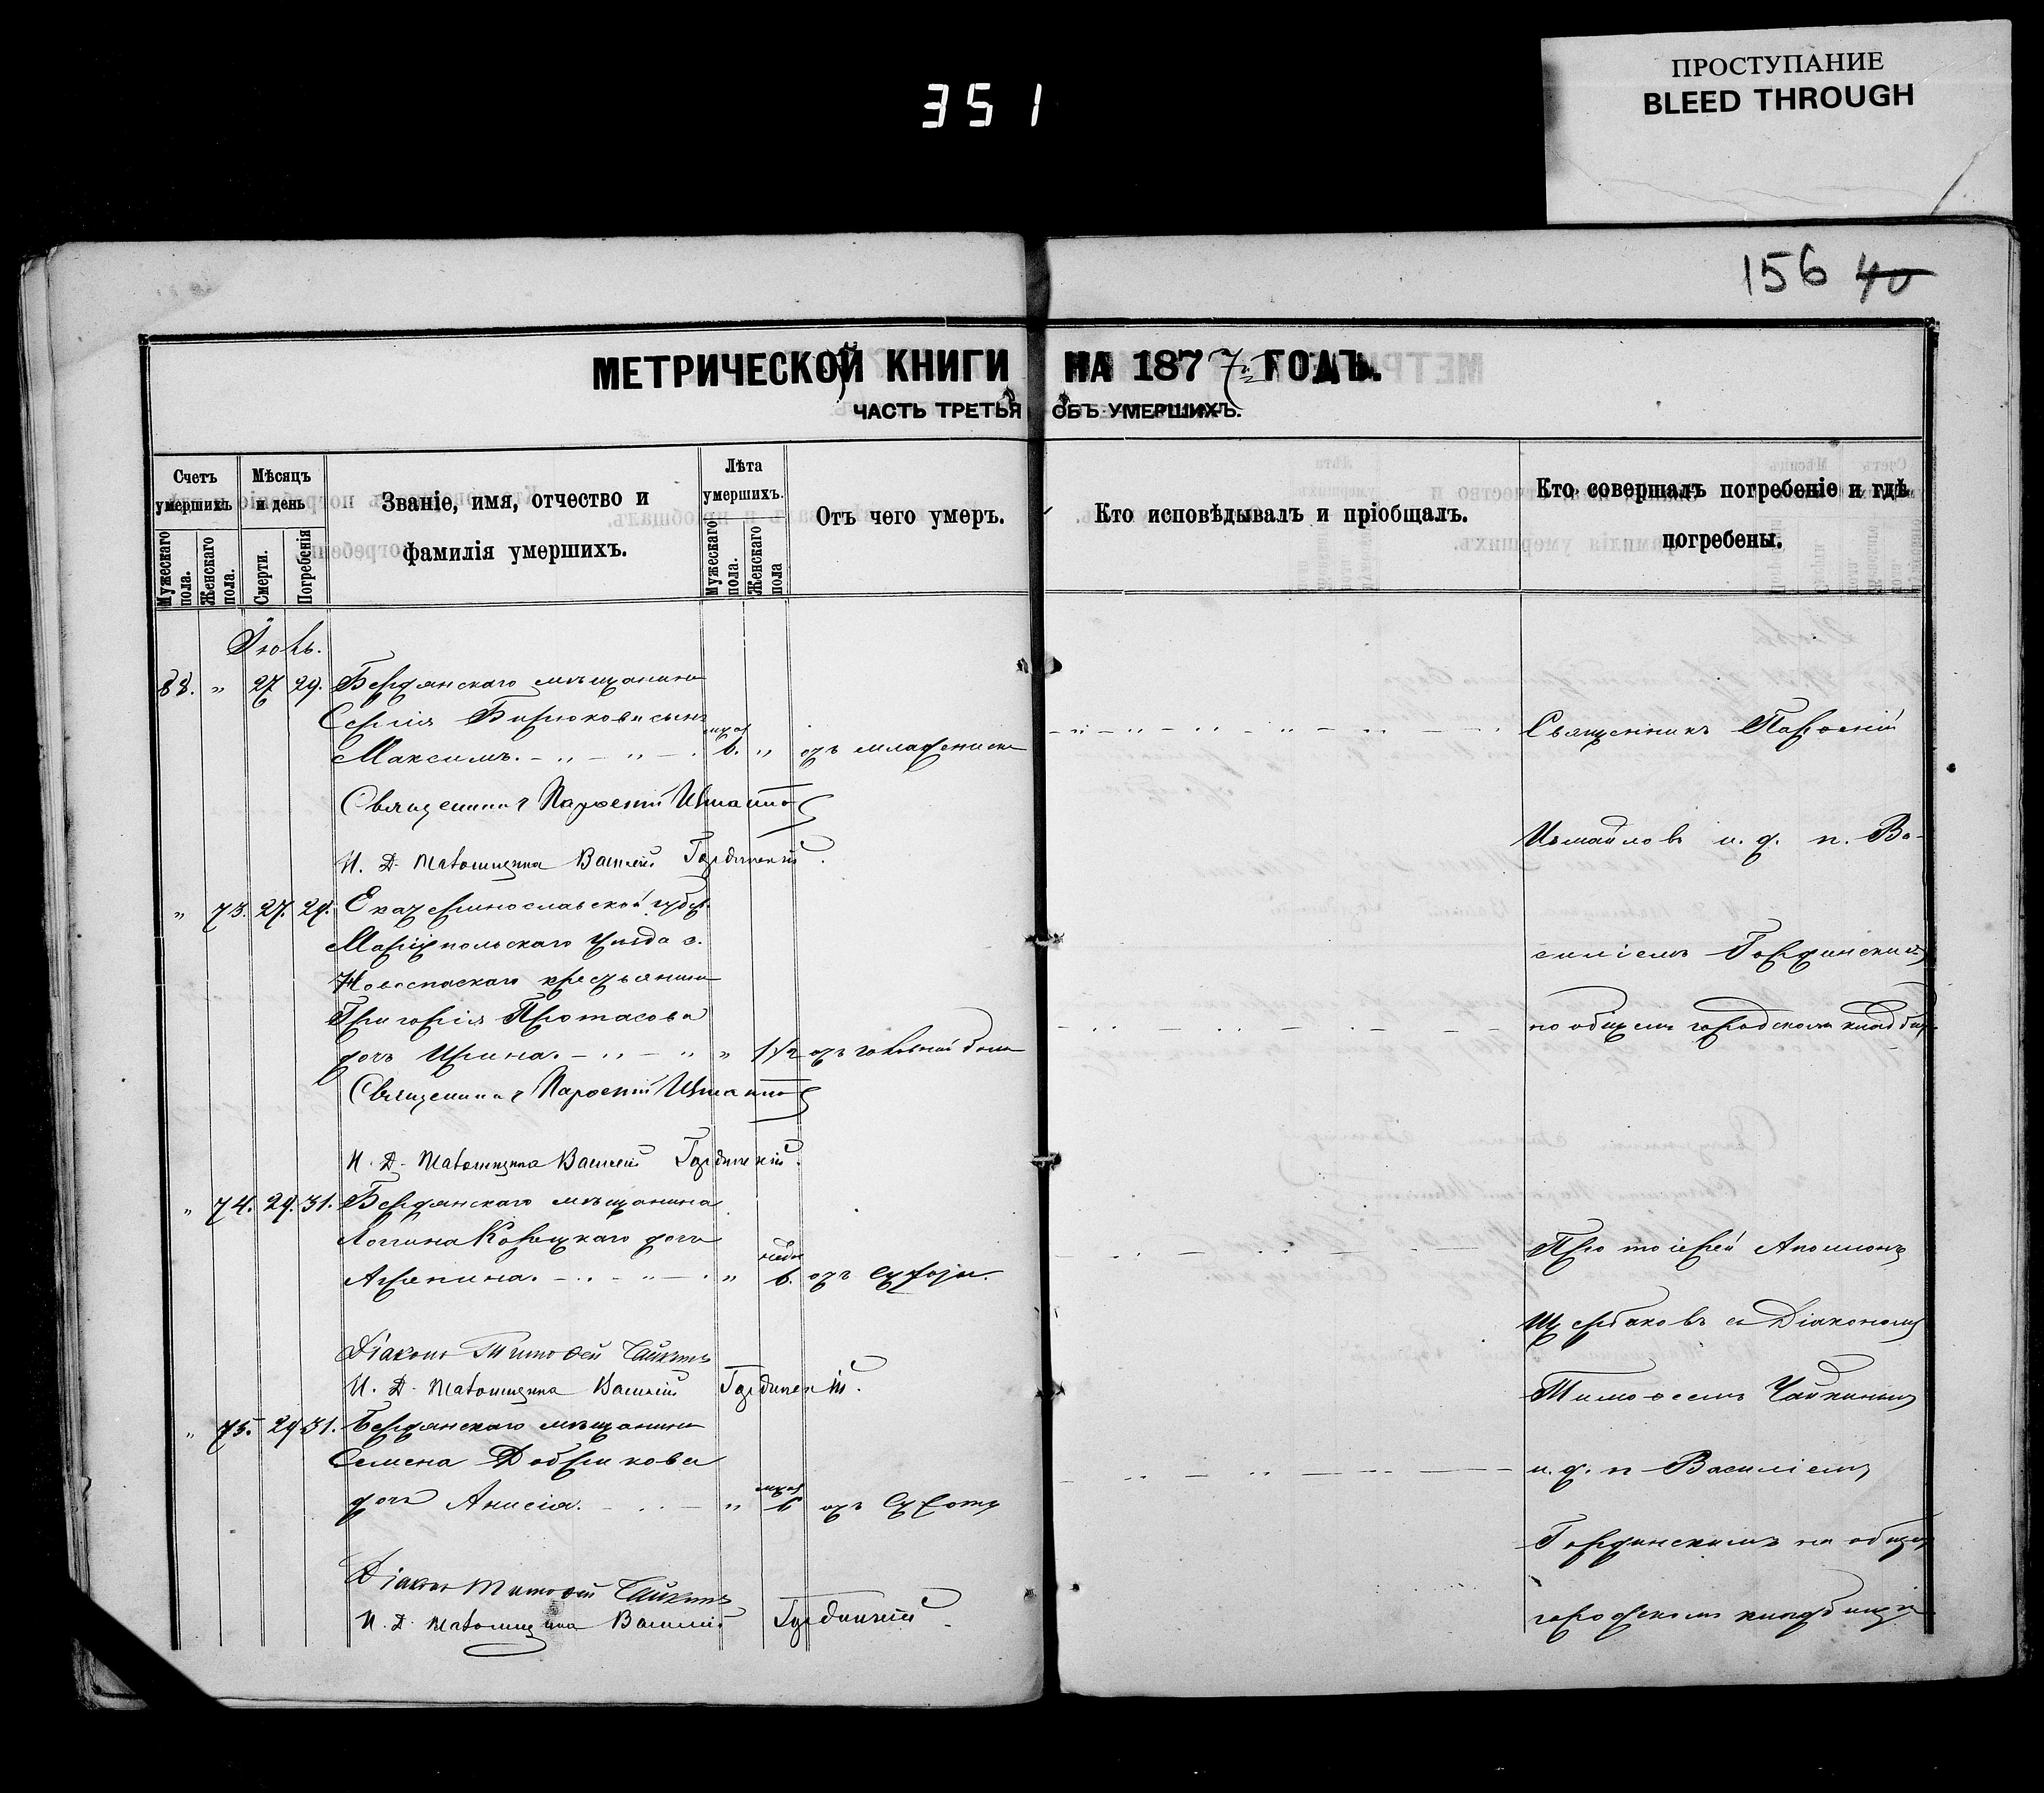 ПРОСТУПАНИЕ
BLEED THROUGH
351
156 40
МЕТРИЧЕСКОЙ КНИГИ НА 1877 ГОДЪ.
ЧАСТЬ ТРЕТЬЯ ОБЪ УМЕРШИХЪ.
Счетъ умершихъ
Мужескаго пола.
Женскаго пола.
Мѣсяцъ и день
Смерти.
Погребенія
Званіе, имя, отчество и фамилія умершихъ.
Лѣта умершихъ.
Мужескаго пола.
Женскаго пола
Отъ чего умеръ.
Кто исповѣдывалъ и пріобщалъ.
Кто совершалъ погребеніе и гдѣ погребены.
Іюль.
88. " 27 29. Бердянскаго мѣщанина
Сергія Бирюкова сынъ
Максимъ. 6. " отъ младенческ
Священникъ Парѳеній
Измаиловъ и. д. п. Ва-
И. Д. Псаломщика Василій Гординскій.
" 73. 27. 29. Екатеринославской губер.
Маріупольскаго уѣзда с.
Новоспаскаго крестьянина
Григорія Протасова
дочь Ирина. " 1 1/2 отъ головной боли
силіемъ Гординскимъ
на общемъ городскомъ кладбищ.
Священникъ Парѳеній
И. Д. Псаломщика Василій Гординскій.
" 74. 29. 31. Бердянскаго мѣщанина
Логгина Корецкаго дочь
Агрепина. " 6.
Протоіерей Аполлонъ
Щербаковъ съ Діакономъ
Діаконъ Тимоѳей Чайкинъ
И. Д. Псаломщика Василій Гординскій.
Тимоѳеемъ Чайкинымъ
" 75. 29 31. Бердянскаго мѣщанина
Семена Добрикова
дочь Анисія. " 6 отъ
и. д. п Василіемъ
Гординскимъ на общемъ
городскомъ кладбищѣ
Діаконъ Тимоѳей Чайкинъ
И. Д. Псаломщика Василій Гординскій